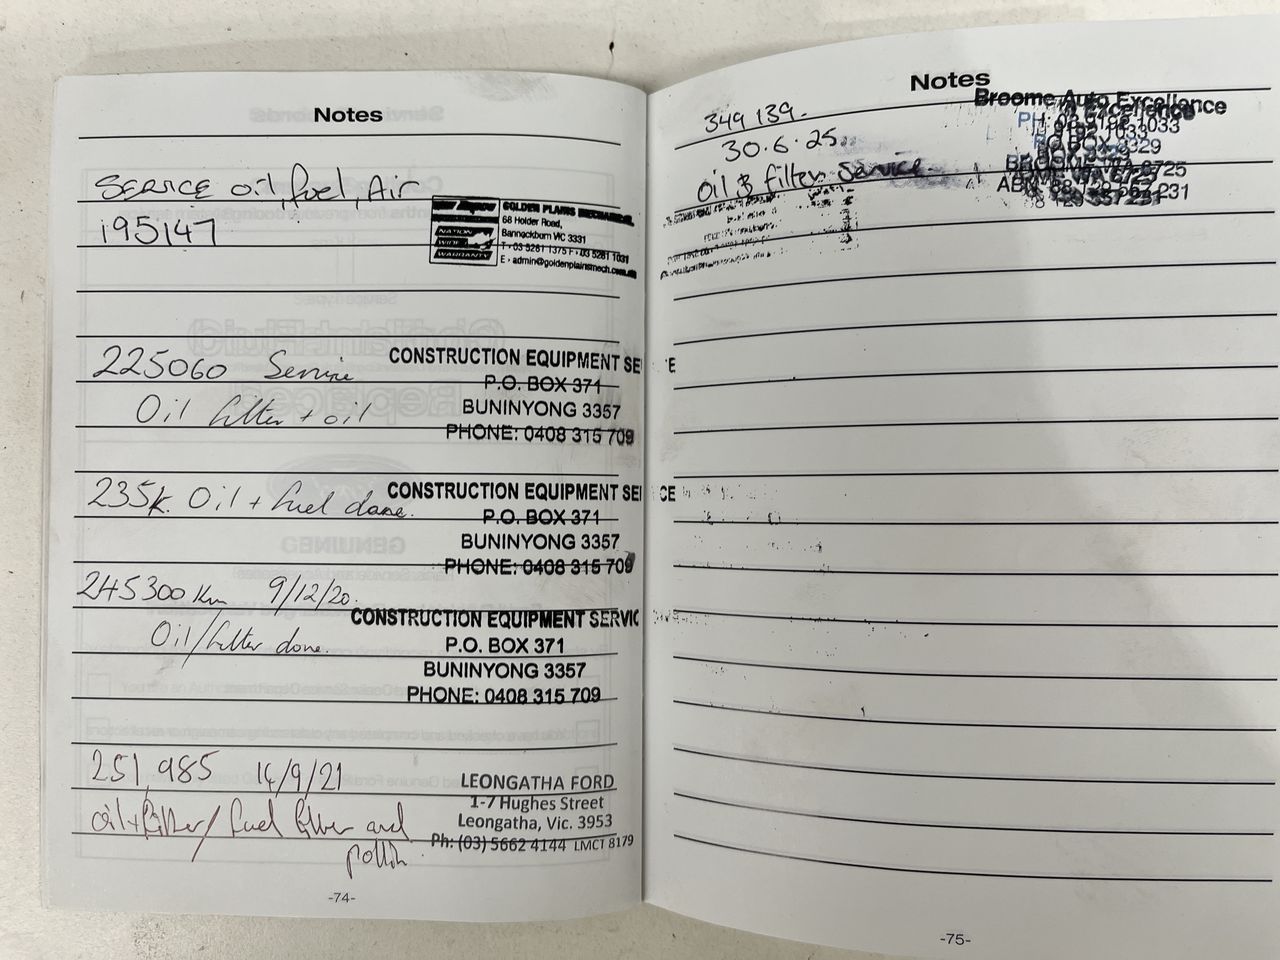 Notes
SERVICE oil, fuel, Air
195147
GOLDEN PLAINS MECHANICAL
68 Holder Road,
Bannockburn VIC 3331
T - 03 5281 1375 F - 03 5281 1031
E - admin@goldenplainsmech.com.au
NATION
WIDE
WARRANTY
225060 Service
Oil filter + oil
CONSTRUCTION EQUIPMENT SE
P.O. BOX 371
BUNINYONG 3357
PHONE: 0408 315 709
235k. Oil + fuel done.
CONSTRUCTION EQUIPMENT SE
P.O. BOX 371
BUNINYONG 3357
PHONE: 0408 315 709
245300 Km 9/12/20.
Oil/filter done.
CONSTRUCTION EQUIPMENT SERVIC
P.O. BOX 371
BUNINYONG 3357
PHONE: 0408 315 709
251,985 14/9/21
oil+filter/fuel filter and
pollin
LEONGATHA FORD
1-7 Hughes Street
Leongatha, Vic. 3953
Ph: (03) 5662 4144 LMCT 8179
-74-
Notes
349 139.
30.6.25
oil & filter service
Broome Auto Excellence
CE
-75-